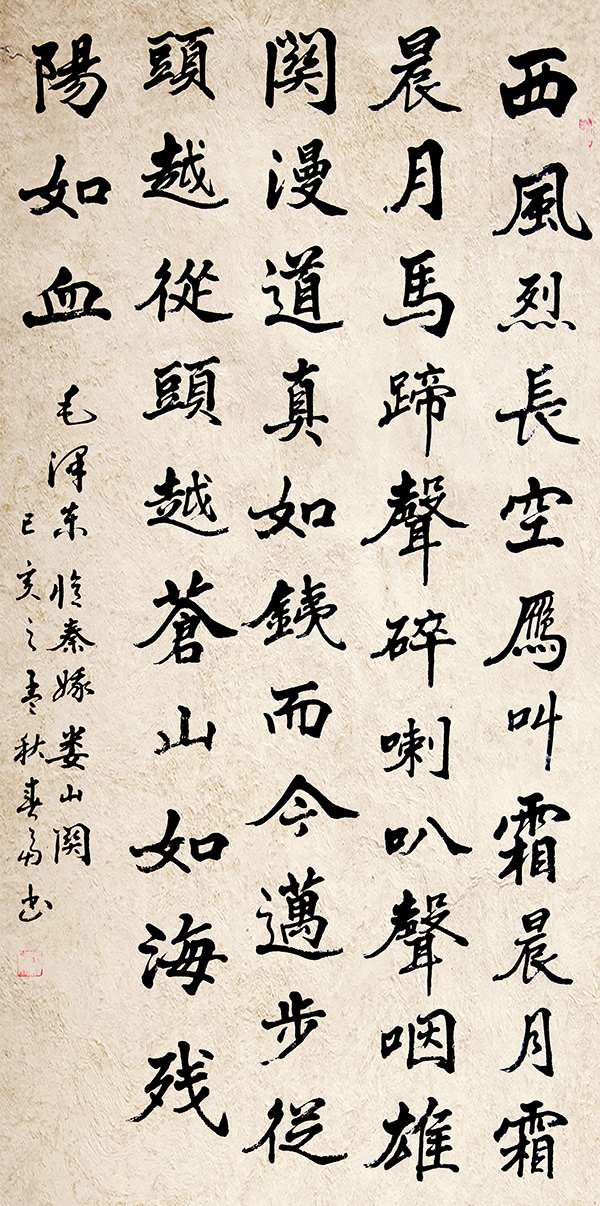 西風烈長空鴈叫霜晨月霜
晨月馬蹄聲碎喇叭聲咽雄
関漫道真如鉄而今邁步從
頭越從頭越蒼山如海残
陽如血
毛泽东憶秦娥娄山関
己亥之孟秋書